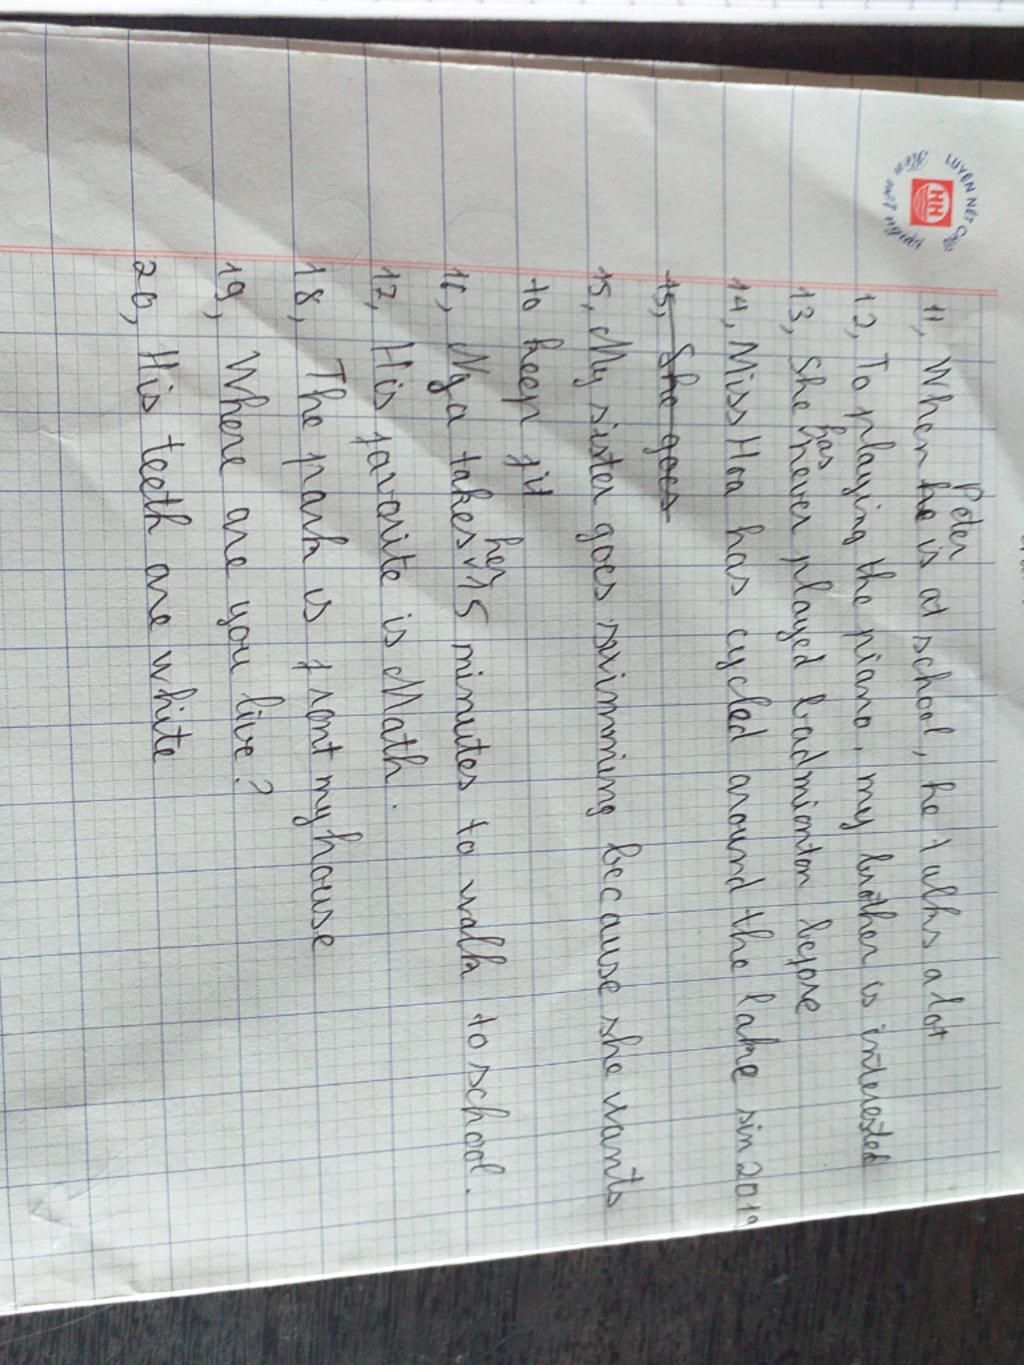 LUYỆN NÉT CHỮ
Rèn nết người
HH
11, When Peter he is at school, he talks a lot
12, To playing the piano, my brother is interested
13, She has never played badmionton before
14, Miss Hoa has cycled around the lake sin 2019
15, She goes
15, My sister goes swimming because she wants
to keep fit
16, Nga takes her 15 minutes to walk to school.
17, His favorite is Math.
18, The park is front my house
19, Where are you live?
20, His teeth are white